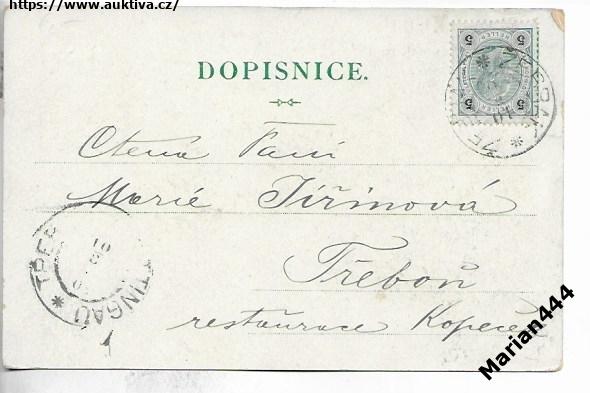 https://www.auktiva.cz/
DOPISNICE.
5 5
HELLER
5 5
Ctená Paní
Marie Jiřinová
Třeboň
restaurace Kopeček
TŘEB
TINGAU
Marian444